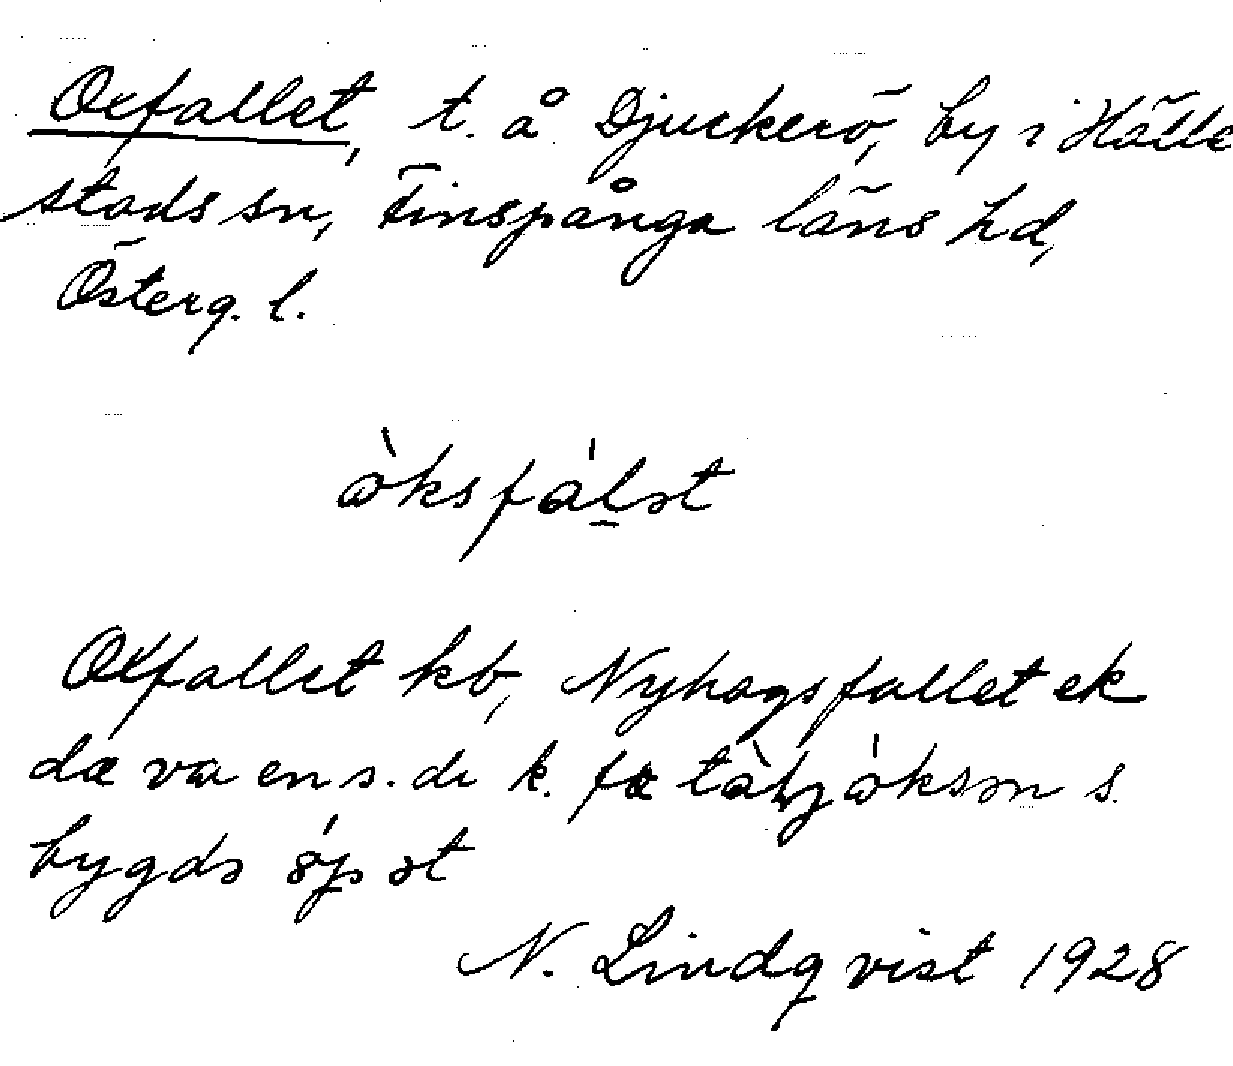 Oxfallet, t. å Djuckerö, by i Hälle
stads sn, Finspånga läns hd,
Österg. l.
ɷ̀ksfálət
Oxfallet kb, Nyhagsfallet ek
dæ va en s. de k. fæ ɷksən s.
bygdə ɷp ət
N. Lindqvist 1928